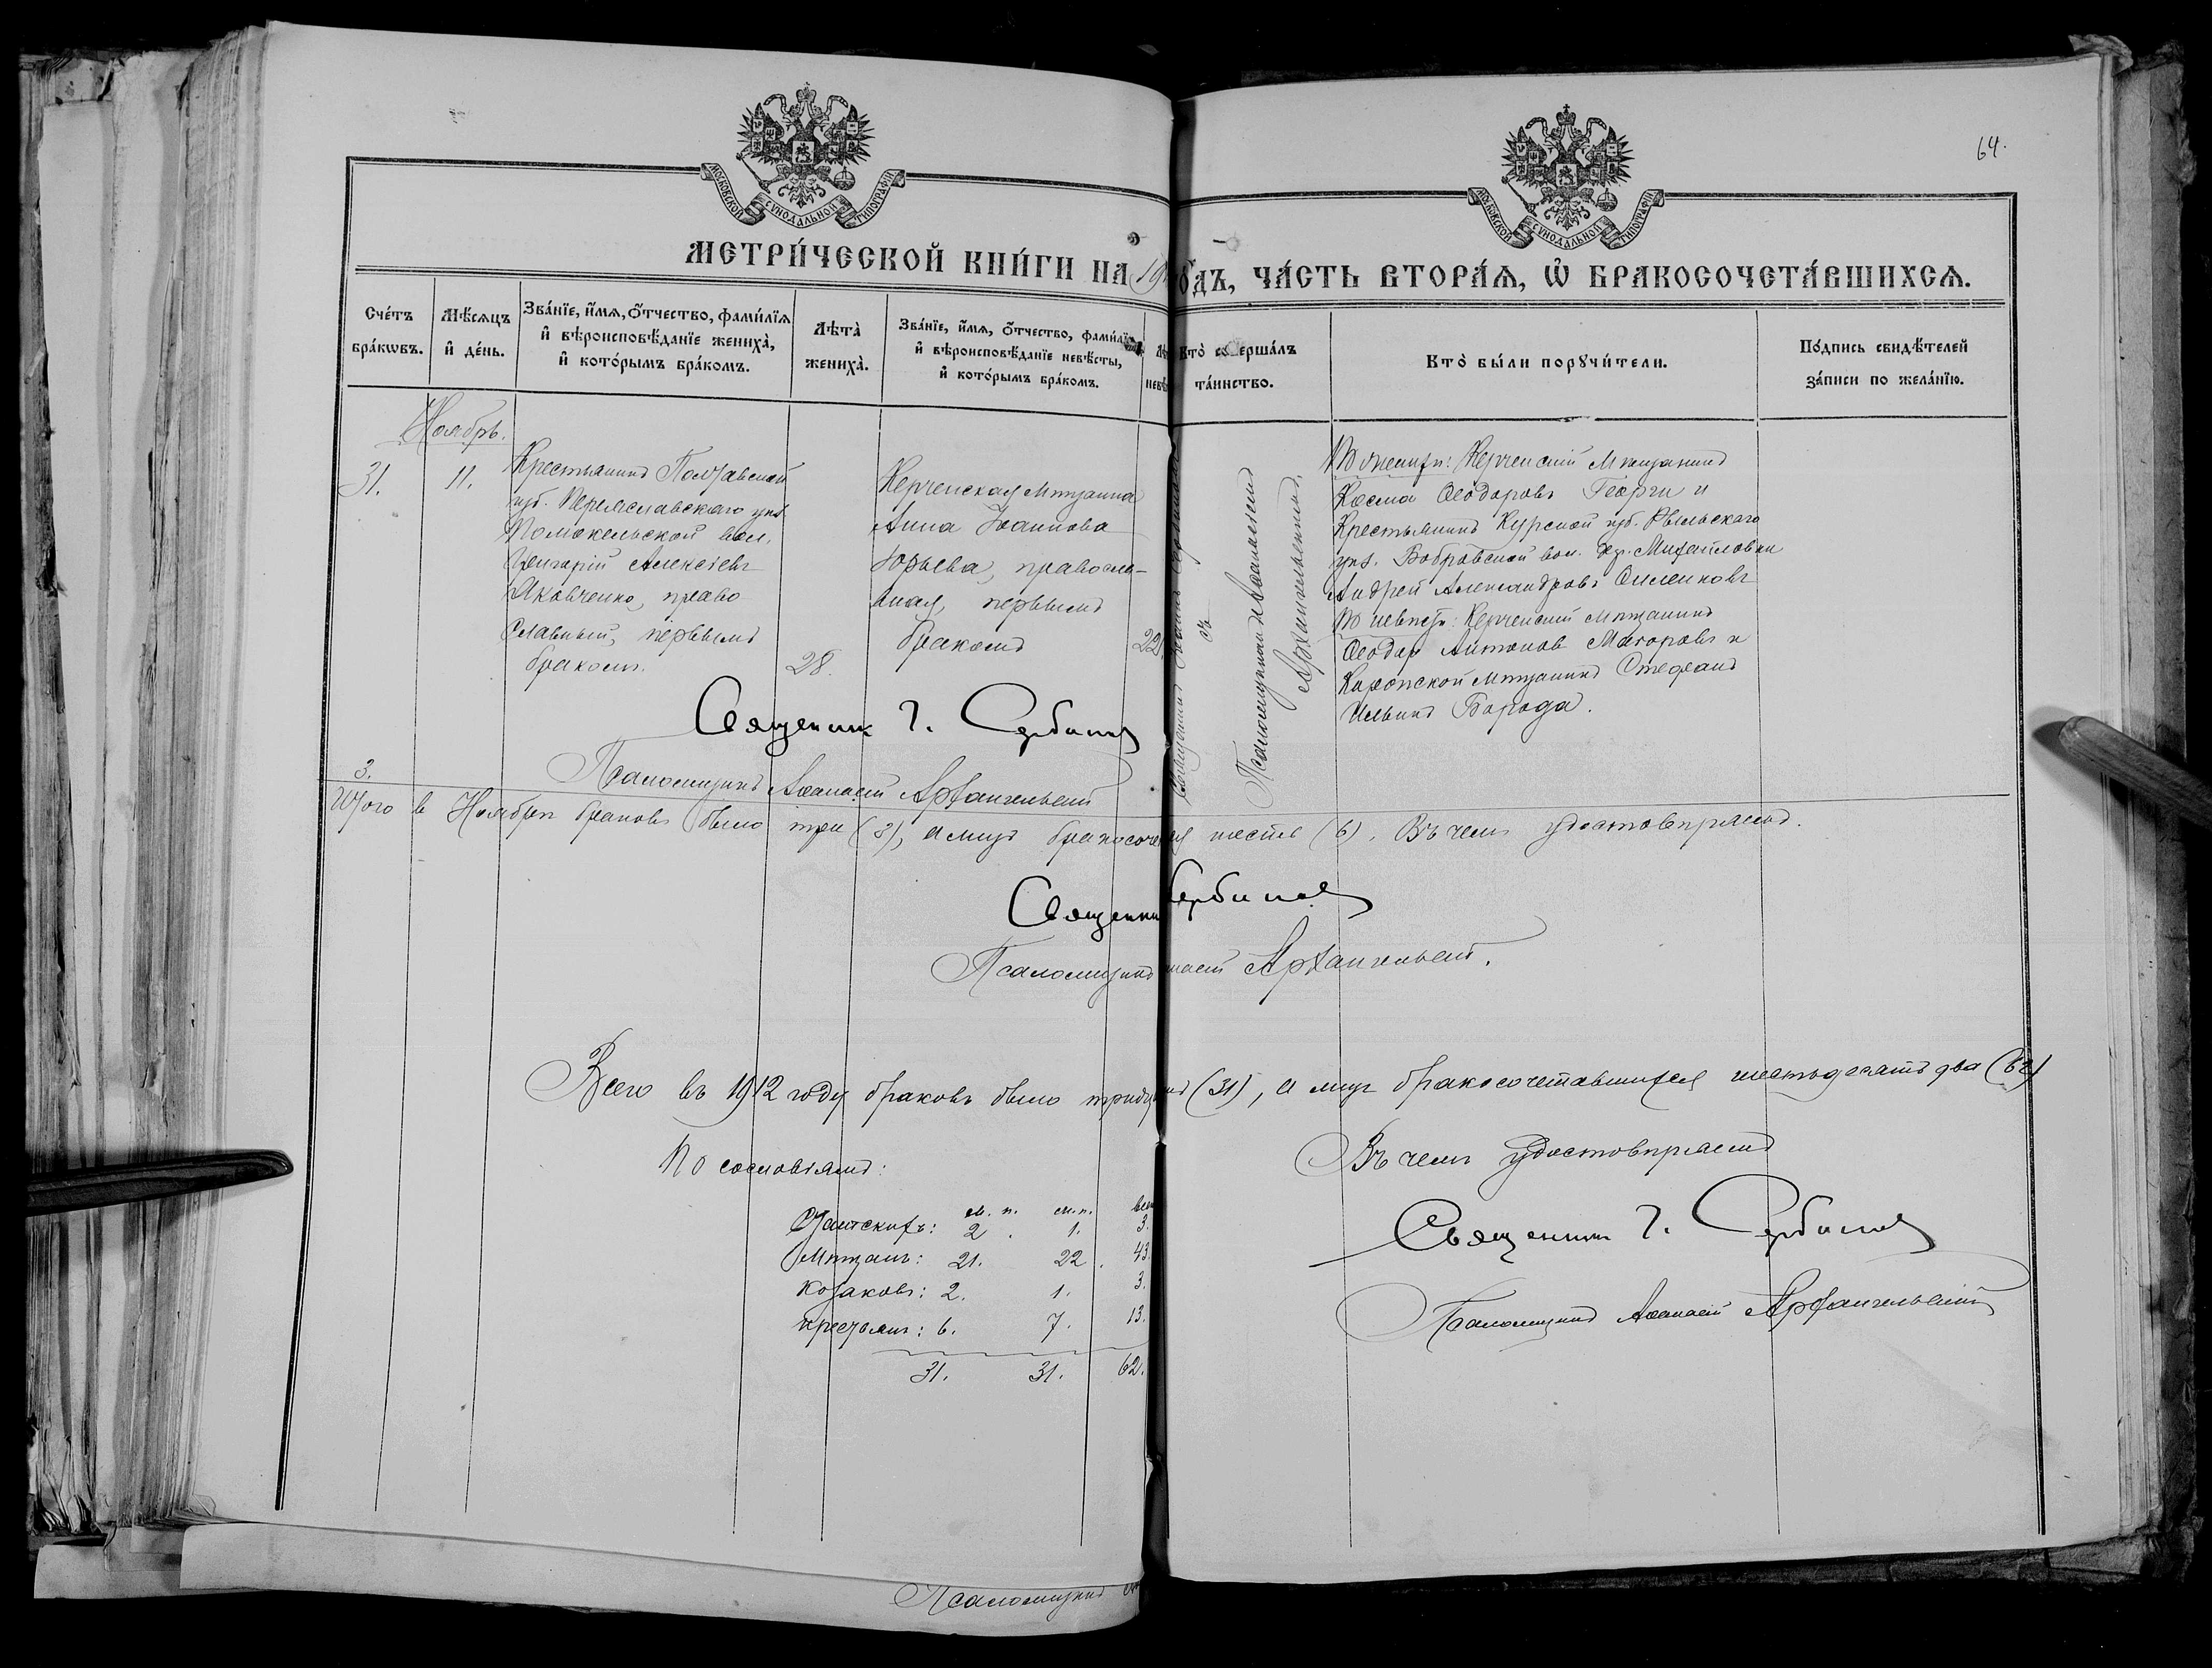 64.
МОСКОВСКОЙ СУНОДАЛЬНОЙ ТИПОГРАФІИ
МОСКОВСКОЙ СУНОДАЛЬНОЙ ТИПОГРАФІИ
МЕТРИ́ЧЕСКОЙ КНИ́ГИ НА 19
ОДЪ, ЧА́СТЬ ВТОРА́Я, Ѡ БРАКОСОЧЕТА́ВШИХСЯ.
Сче́тъ бра́кѡвъ.
Мѣ́сяцъ и҆ де́нь.
Зва́нїе, и҆́мя, о҆́тчество, фами́лїя
и҆ вѣроисповѣ́данїе жениха̀,
и҆ кото́рымъ бра́комъ.
Лѣта̀ жениха̀.
Зва́нїе, и҆́мя, о҆́тчество, фами́лїя
и҆ вѣроисповѣ́данїе невѣ́сты,
и҆ кото́рымъ бра́комъ.
Кто̀ соверша́лъ
та́инство.
Кто̀ бы́ли порꙋчи́тели.
По́дпись свидѣ́телей
за́писи по жела́нїю.
Ноябрь.
31.
11.
Крестьянинъ Полтавской
губ. Переяславскаго уѣз.
Помокельской вол.
Григорій Алексѣевъ
Яковченко, право
славный, первымъ
бракомъ.
28.
Керченская мѣщанка
Анна Іоаннова
Юрьева, правосла-
вная, первымъ
бракомъ
22.
Священникъ Іоаннъ Сербиновъ
съ
Псаломщикомъ Аѳанасіемъ
Архангельскимъ.
По женихѣ: Керченскій мѣщанинъ
Косма Ѳеодоровъ Георги и
Крестьянинъ Курской губ. Рыльскаго
уѣз. Бобровской вол. дер. Михайловки
Андрей Александровъ Симениковъ
По невѣстѣ: Керченскій мѣщанинъ
Ѳеодоръ Антоновъ Макоровъ и
мѣщанинъ Стефанъ
Ильинъ Борода.
Священник І. Сербинов
Псаломщикъ Аѳанасій Архангельскій
3.
Итого в Ноябрѣ браковъ было три (3), а лицъ бракосоче ся шесть (6). Въ чемъ удостовѣряемъ.
Священни Сербинов
Псаломщикъ насій Архангельскій.
Всего въ 1912 году браковъ было тридц нъ (31), а лицъ бракосочетавшихся шестьдесятъ два (62)
По сословіямъ:
Въ чемъ удостовѣряемъ
м. п. ж. п. всего
Штатскихъ: 2. 1. 3.
Мѣщанъ: 21. 22. 43.
Козаковъ: 2. 1. 3.
Крестьянъ: 6. 7. 13.
31. 31. 62.
Священник І. Сербинов
Псаломщикъ Аѳанасій Архангельскій
Псаломщикъ